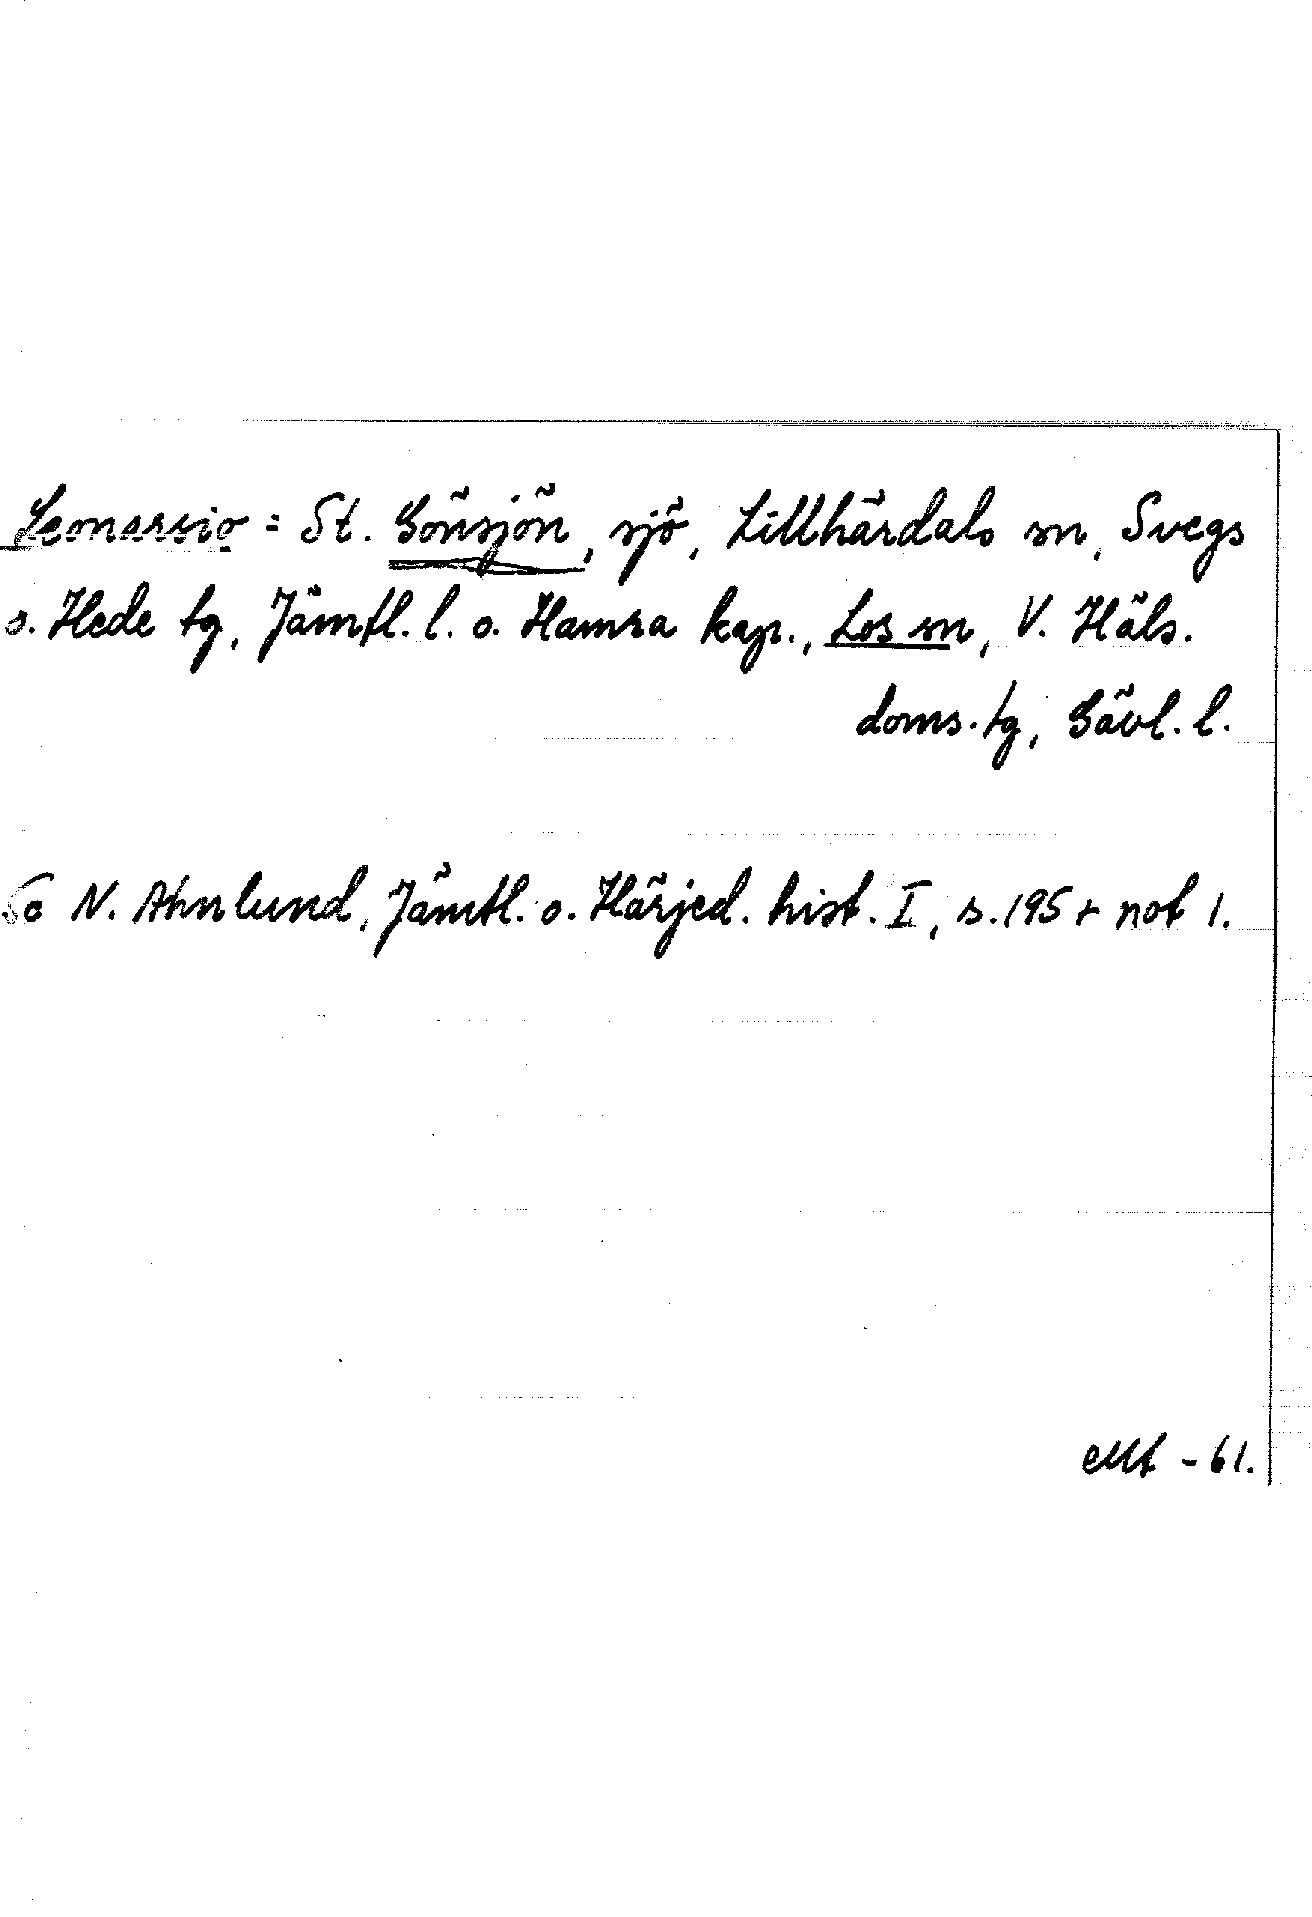 Leonarsio = St. Gönsjön, sjö, Lillhärdals sn, Svegs
o. Hede tg, Jämtl. l. o. Hamra kap., Los sn, V. Häls.
doms. tg, Gävl. l.
Se N. Ahnlund, Jämtl. o. Härjed. hist. I, s. 195 + not 1.
-61.